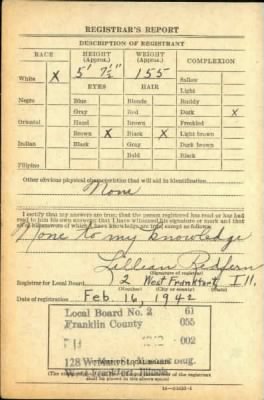 REGISTRAR'S REPORT
DESCRIPTION OF REGISTRANT
RACE HEIGHT (Approx.) WEIGHT (Approx.) COMPLEXION
White X 5' 7½" 155 Sallow
Light
EYES HAIR
Negro Blue Blonde Ruddy
Gray Red Dark X
Oriental Hazel Brown Freckled
Brown X Black X Light brown
Indian Black Gray Dark brown
Bald Black
Filipino
Other obvious physical characteristics that will aid in identification
None
I certify that my answers are true; that the person registered has read or has had
read to him his own answers; that I have witnessed his signature or mark and that
all of his answers of which I have knowledge are true, except as follows:
None to my knowledge
Lillian Redfern
(Signature of registrar)
Registrar for Local Board 2 West Frankfort, Ill.
(Number) (City or county) (State)
Date of registration Feb. 16, 1942
Local Board No. 2 61
Franklin County 055
002
128
West Frankfort, Illinois